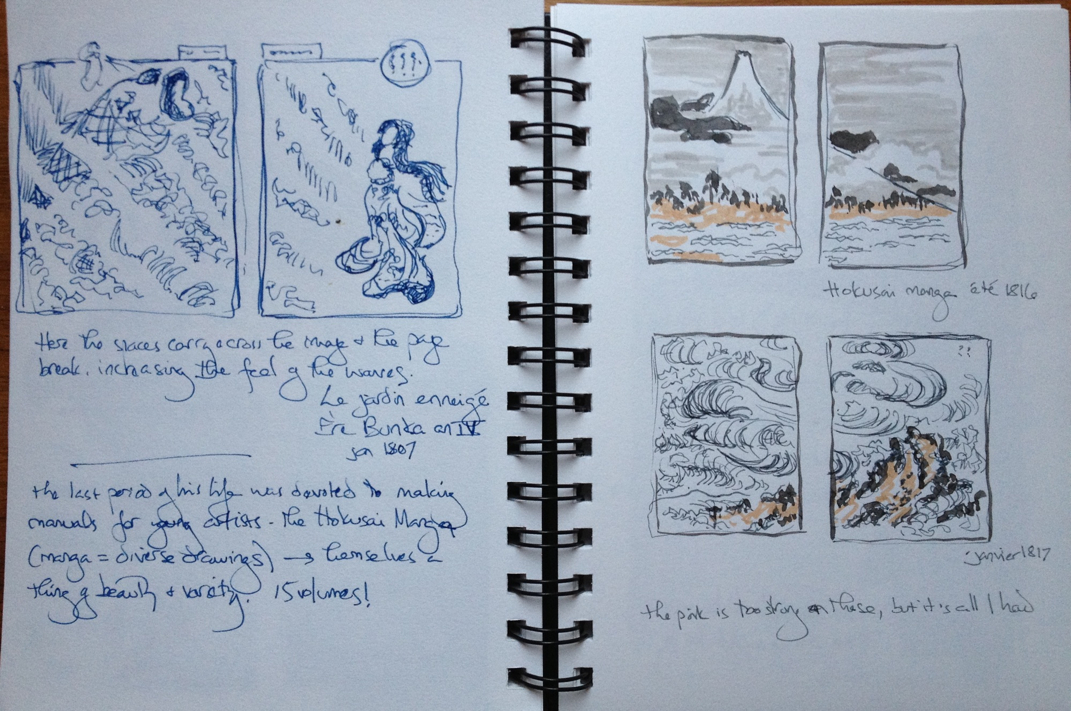 Here the spaces carry across the image & the page
break, increasing the feel of the waves.
Le jardin enneigé
Ère Bunka an IV
jan 1807
the last period of his life was devoted to making
manuals for young artists - the Hokusai Manga
(manga = diverse drawings) → themselves a
thing of beauty & variety. 15 volumes!
Hokusai manga été 1816
janvier 1817
the pink is too strong on these, but it's all I had